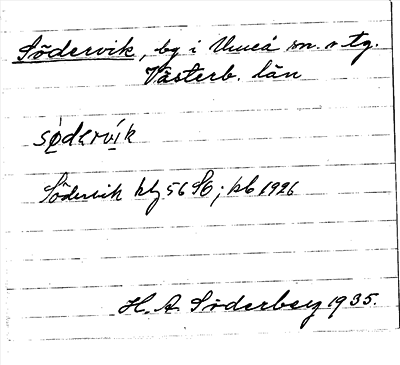 Södervik, by i Umeå sn. o tg.
Västerb. län
sødervík
Södervik ktj 56 SO; kb 1926
H. A. Söderberg 1935.